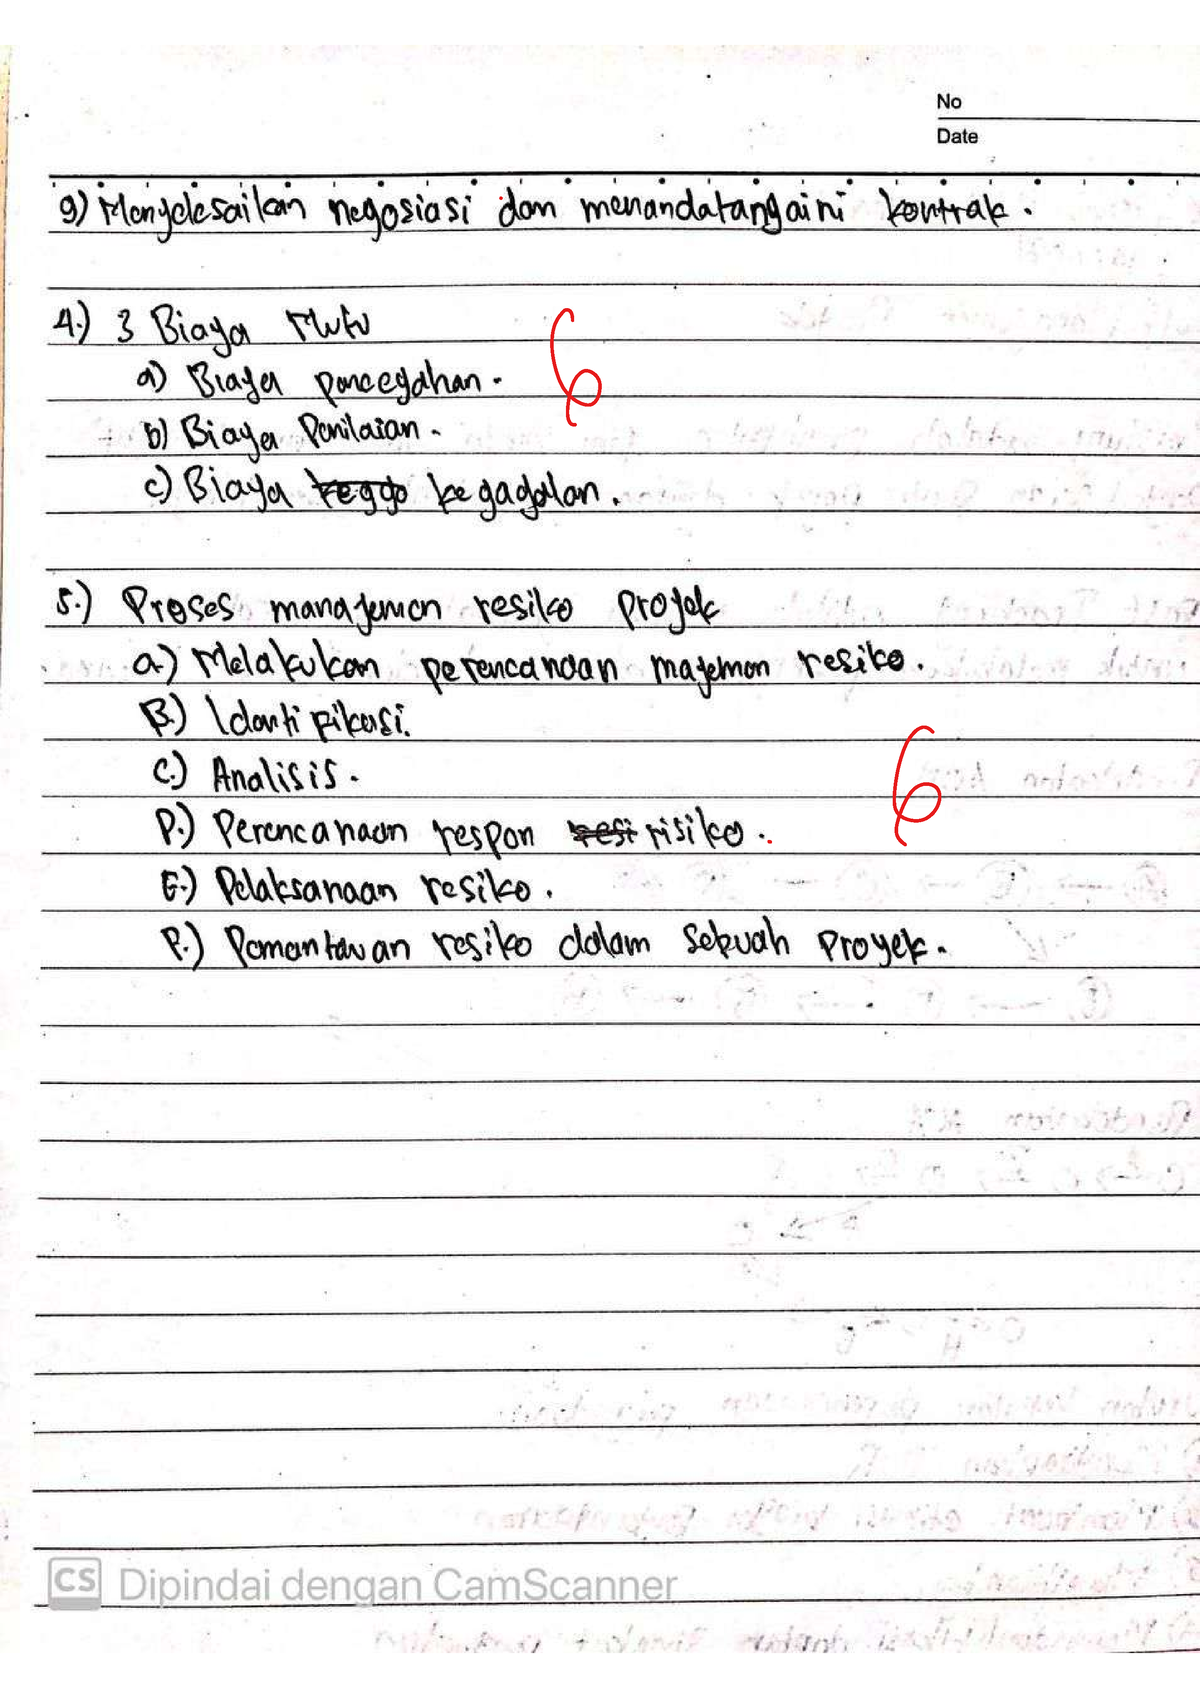 No
Date
g) Menyelesaikan negosiasi dan menandatangaini kontrak.
4.) 3 Biaya Mutu
6
a) Biaya pencegahan.
b) Biaya Penilaian.
c) Biaya kegagalan.
5.) Proses manajemen resiko proyek
a.) Melakukan perencanaan majemen resiko.
B.) Identifikasi.
C.) Analisis.
6
D.) Perencanaan respon risiko.
E.) Pelaksanaan resiko.
F.) Pemantauan resiko dalam sebuah proyek.
CS Dipindai dengan CamScanner